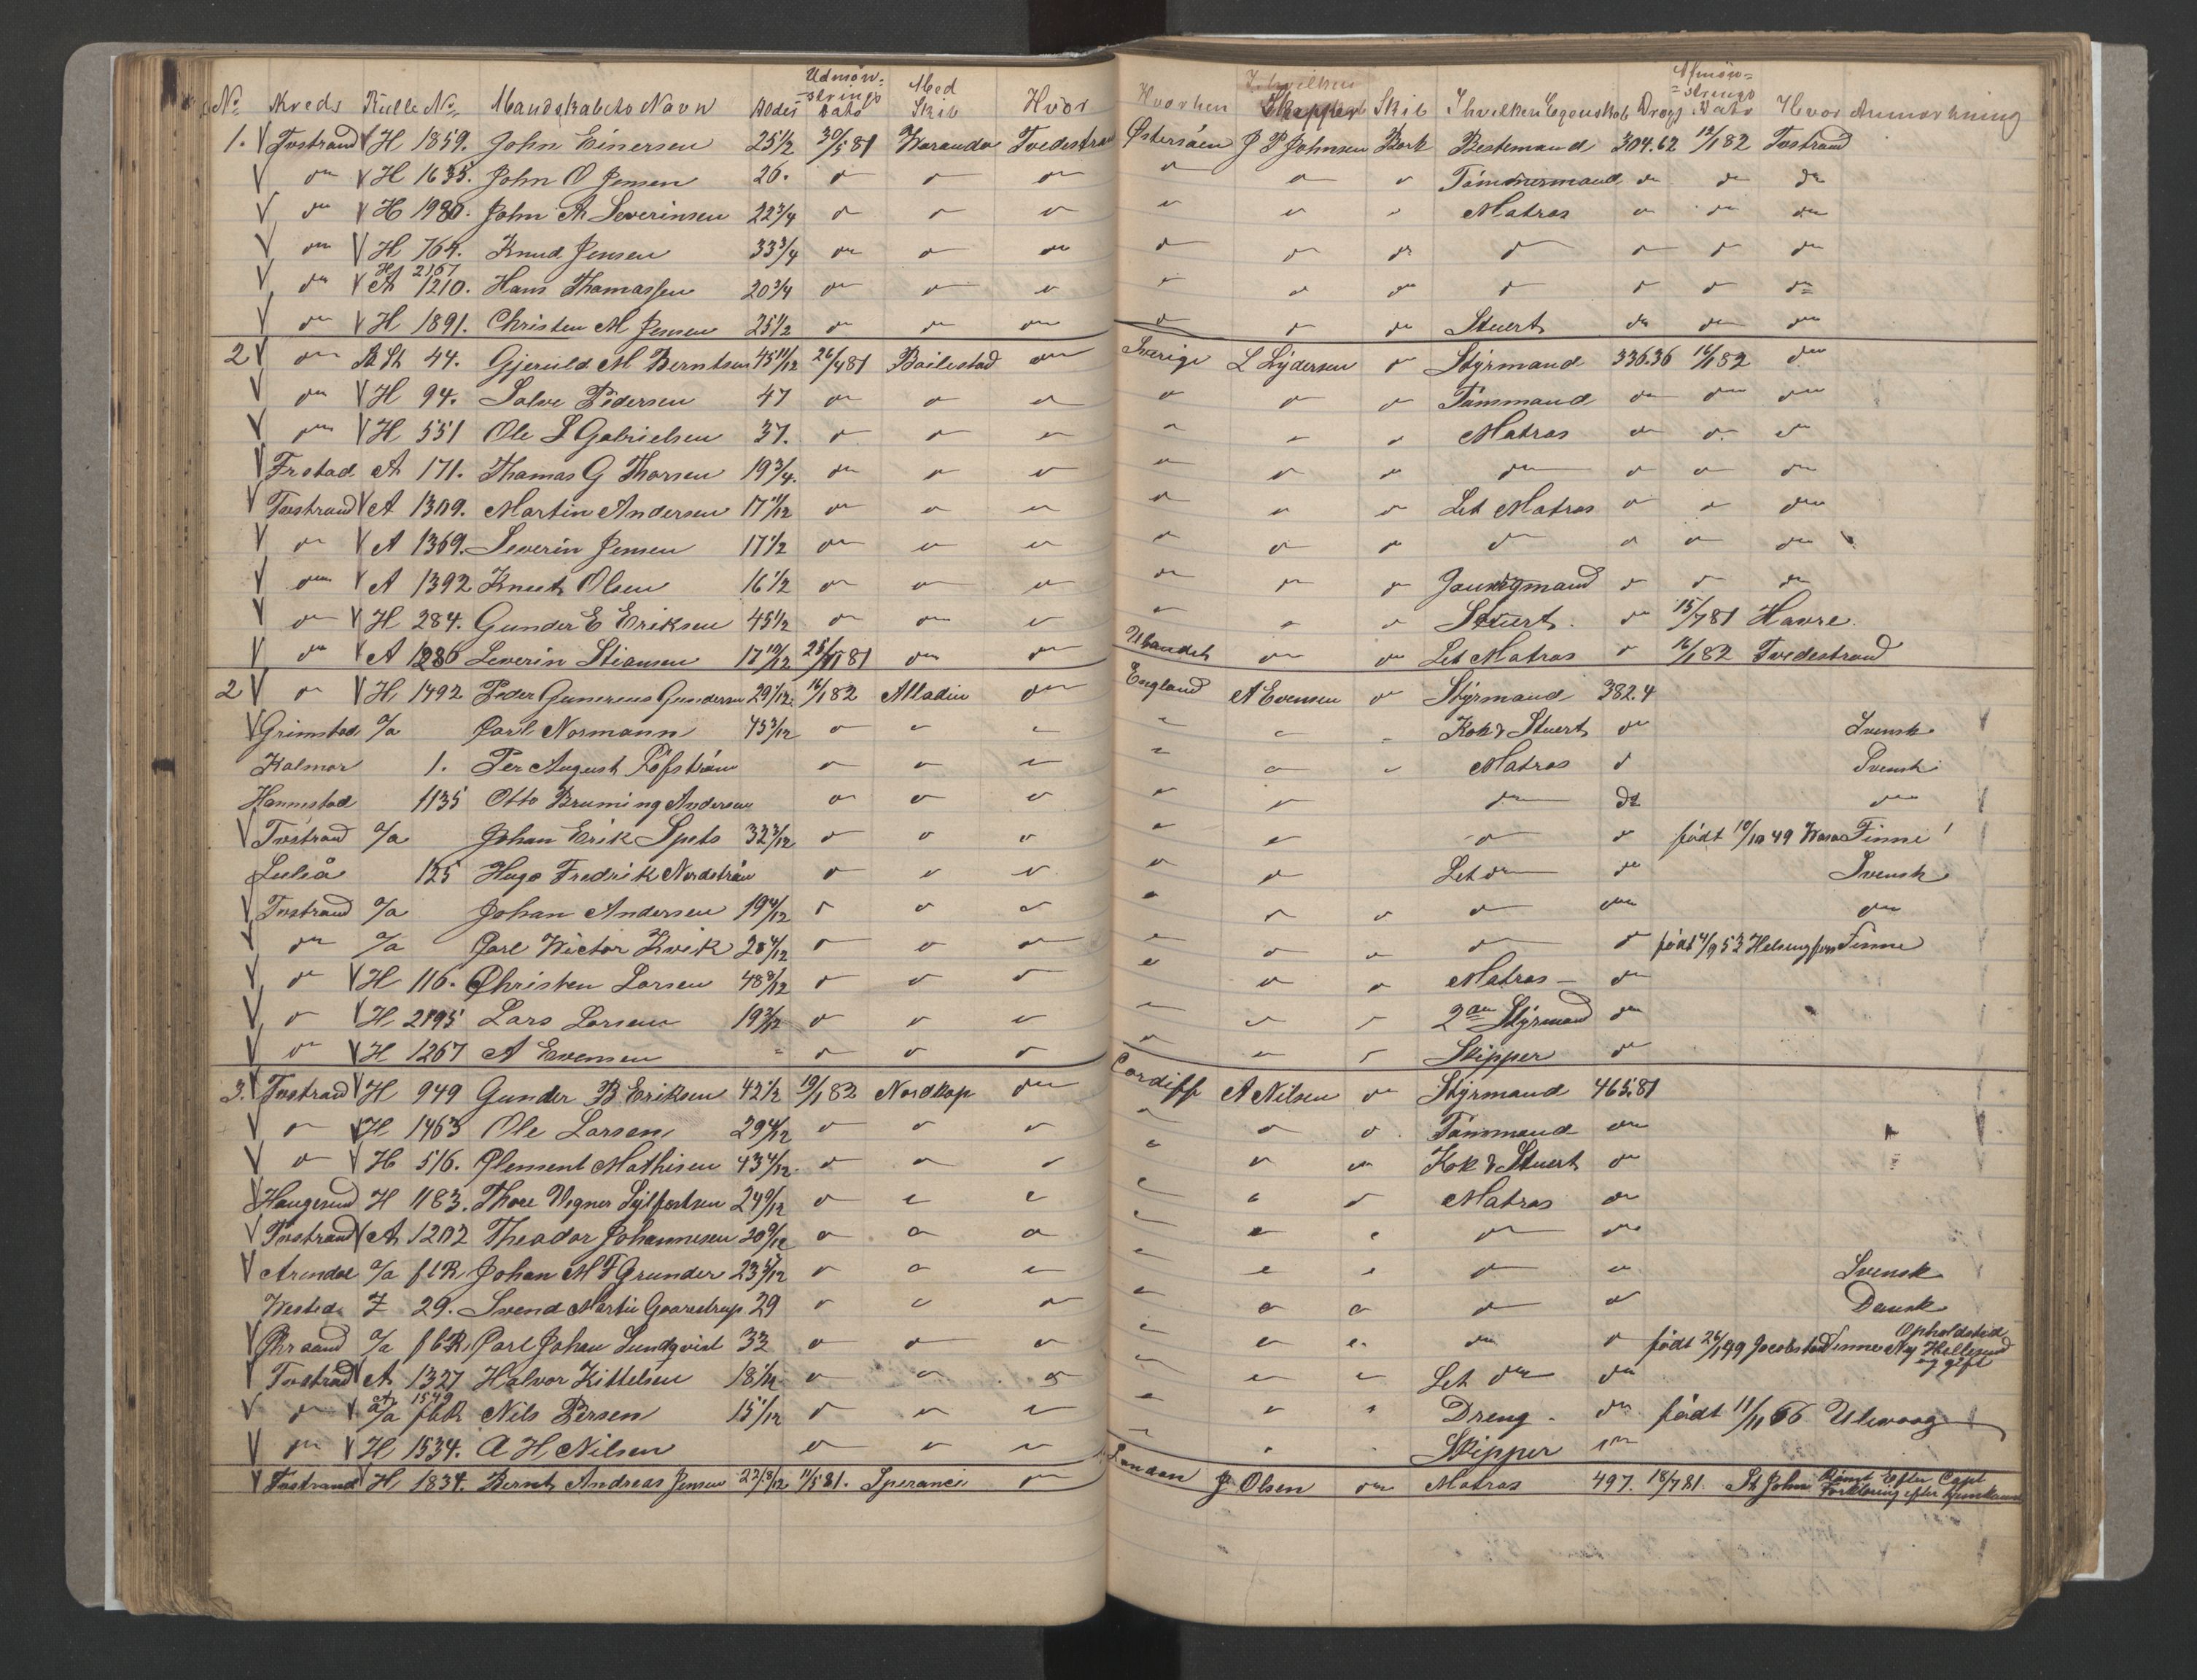 No. Kreds Rulle No. Mandskabets Navn Alder Udmønstrings Dato Med Skib Hvor Hvorhen Skipper Skib I hvilken Egenskab Drægt Afmønstrings Dato Hvor Anmærkning
1. V Tvstrand V H 1859. John Einersen 25 1/2 30/5 81 Karanda Tvedestrand Østersöen J P Johnsen Bark Bestemand 304.62 12/1 82 Tvstrand
V do V H 1635. John O Jensen 26. do do do do do do Tömmermand do do do
V do V H 1980. John A Severinsen 22 3/4 do do do do do do Matros do do do
V do V H 764. Knud Jensen 33 3/4 do do do do do do do do do do
H 2167
V do V A 1210. Hans Thomassen 20 3/4 do do do do do do do do do do
V do V H 1891. Christen M Jensen 25 1/2 do do do do do do Stuert do do do
2 V do B St 44. Gjeruld M Berntsen 45 11/12 26/4 81 Boilestad do Sverige L Lydersen do Styrmand 336.36 16/1 82 do
V do V H 94. Salve Pedersen 47 do do do do do do Tömmand do do do
V do V H 551 Ole S Gabrielsen 37. do do do do do do Matros do do do
V Frstad A 171. Thomas G Thorsen 19 3/4. do do do do do do do do do do
V Tvstrand V A 1309. Martin Andersen 17 11/12 do do do do do do Let Matros do do do
V do V A 1369. Severin Jensen 17 1/2 do do do do do do do do do do
V do V A 1392 Knut Olsen 16 1/2 do do do do do do Jungmand do do do
V do V H 284. Gunder E Eriksen 45 1/2 do do do do do do Stuert. do 15/7 81 Havre.
V do V A 1286 Severin Stiansen 17 10/12 25/11 81 do do Ubandet do do Let Matros do 16/1 82 Tvedestrand
2 V do V H 1492 Peder Gunerius Gundersen 29 1/12. 16/1 82 Alladin do England A Evensen do Styrmand 382.4
V Grimstad o/a Carl Normann 45 3/12 do do do do do do Kok & Stuert do Svensk
Kalmar 1. Per August Röfström do do do do do do Matros do Svensk
Hannestad 1135 Otto Bruming Andersen do do do do do do do do
V Tvstrand o/a Johan Erik Spets 32 3/12 do do do do do do do födt 10/10 49 Wasa Finne
Luleå 125 Hugo Fredrik Nordström do do do do do Let do do Svensk
V Tvstrand o/a Johan Andersen 19 4/12 do do do do do do do do do
V do o/a Carl Wictor Kvik 28 4/12 do do do do do do do do födt 4/9 53 Helsingfors Finne
V do V H 116. Christen Larsen 48 8/12 do do do do do do Matros do
V do V H 2195 Lars Larsen 19 3/12 do do do do do do 2den Styrmand do
V do V H 1267 A Evensen do do do do do do Skipper do
3. V Tvstrand V H 949 Gunder B Eriksen 42 1/2 19/1 82 Nordkap do Cardiff A Nilsen do Styrmand 465.81
V do V H 1463 Ole Larsen 29 4/12 do do do do do do Tömmand do
V do V H 516. Clement Mathisen 43 4/12. do do do do do do Kok & Stuert do
V Haugesund H 1183. Thore Wegner Sylfestsen 24 9/12 do do do do do do Matros do
V Tvstrand V A 1202 Theodor Johannesen 20 9/12 do do do do do do do do
V Arendal o/a f l R Johan M F Grunder 23 5/12 do do do do do do do do Svensk
Wested. Z 29. Svend Martin Gaarestrup 29 do do do do do do do do Dansk
V Chrsand o/a f l R. Carl Johan Sundqvist 33 do do do do do do do do födt 26/1 49 Jacobstad Finne Opholdsted Ny Hellesund og gift
V Tvstrand V A 1327 Halvor Kittelsen 18 1/12 do do do do do do Let do do
A 1549
V do V o/a f l R Nils Persen 15 1/12 do do do do do do Dreng do födt 11/11 66 Ulevaag
V do V H 1534. A H Nilsen do do do do do do Skipper do
V Tvstrand V H 1834. Bernt Andreas Jensen 22 8/12 11/5 81. Speranci do London J Olsen do Matros 497. 18/7 81. St John Rømt Efter Capt Forklaring